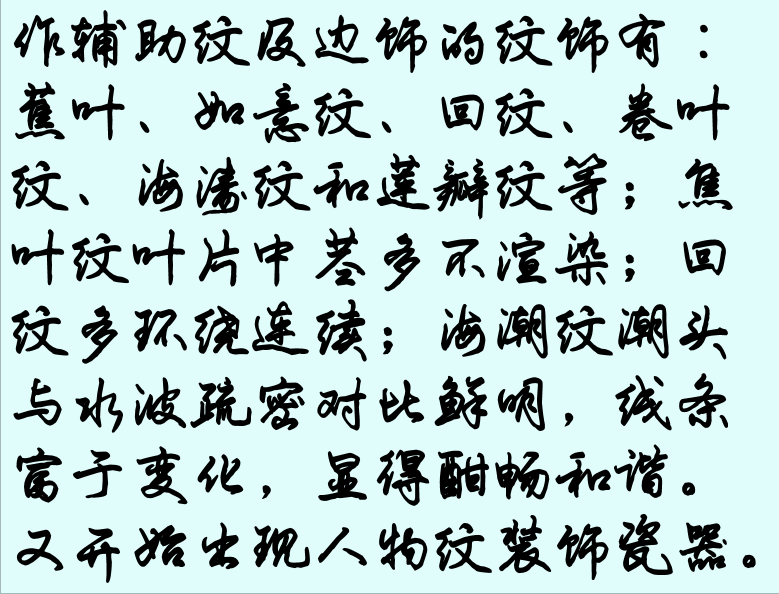 作辅助纹及边饰的纹饰有：
蕉叶、如意纹、回纹、卷叶
纹、海涛纹和莲瓣纹等；焦
叶纹叶片中茎多不渲染；回
纹多环绕连续；海潮纹潮头
与水波疏密对比鲜明，线条
富于变化，显得酣畅和谐。
又开始出现人物纹装饰瓷器。